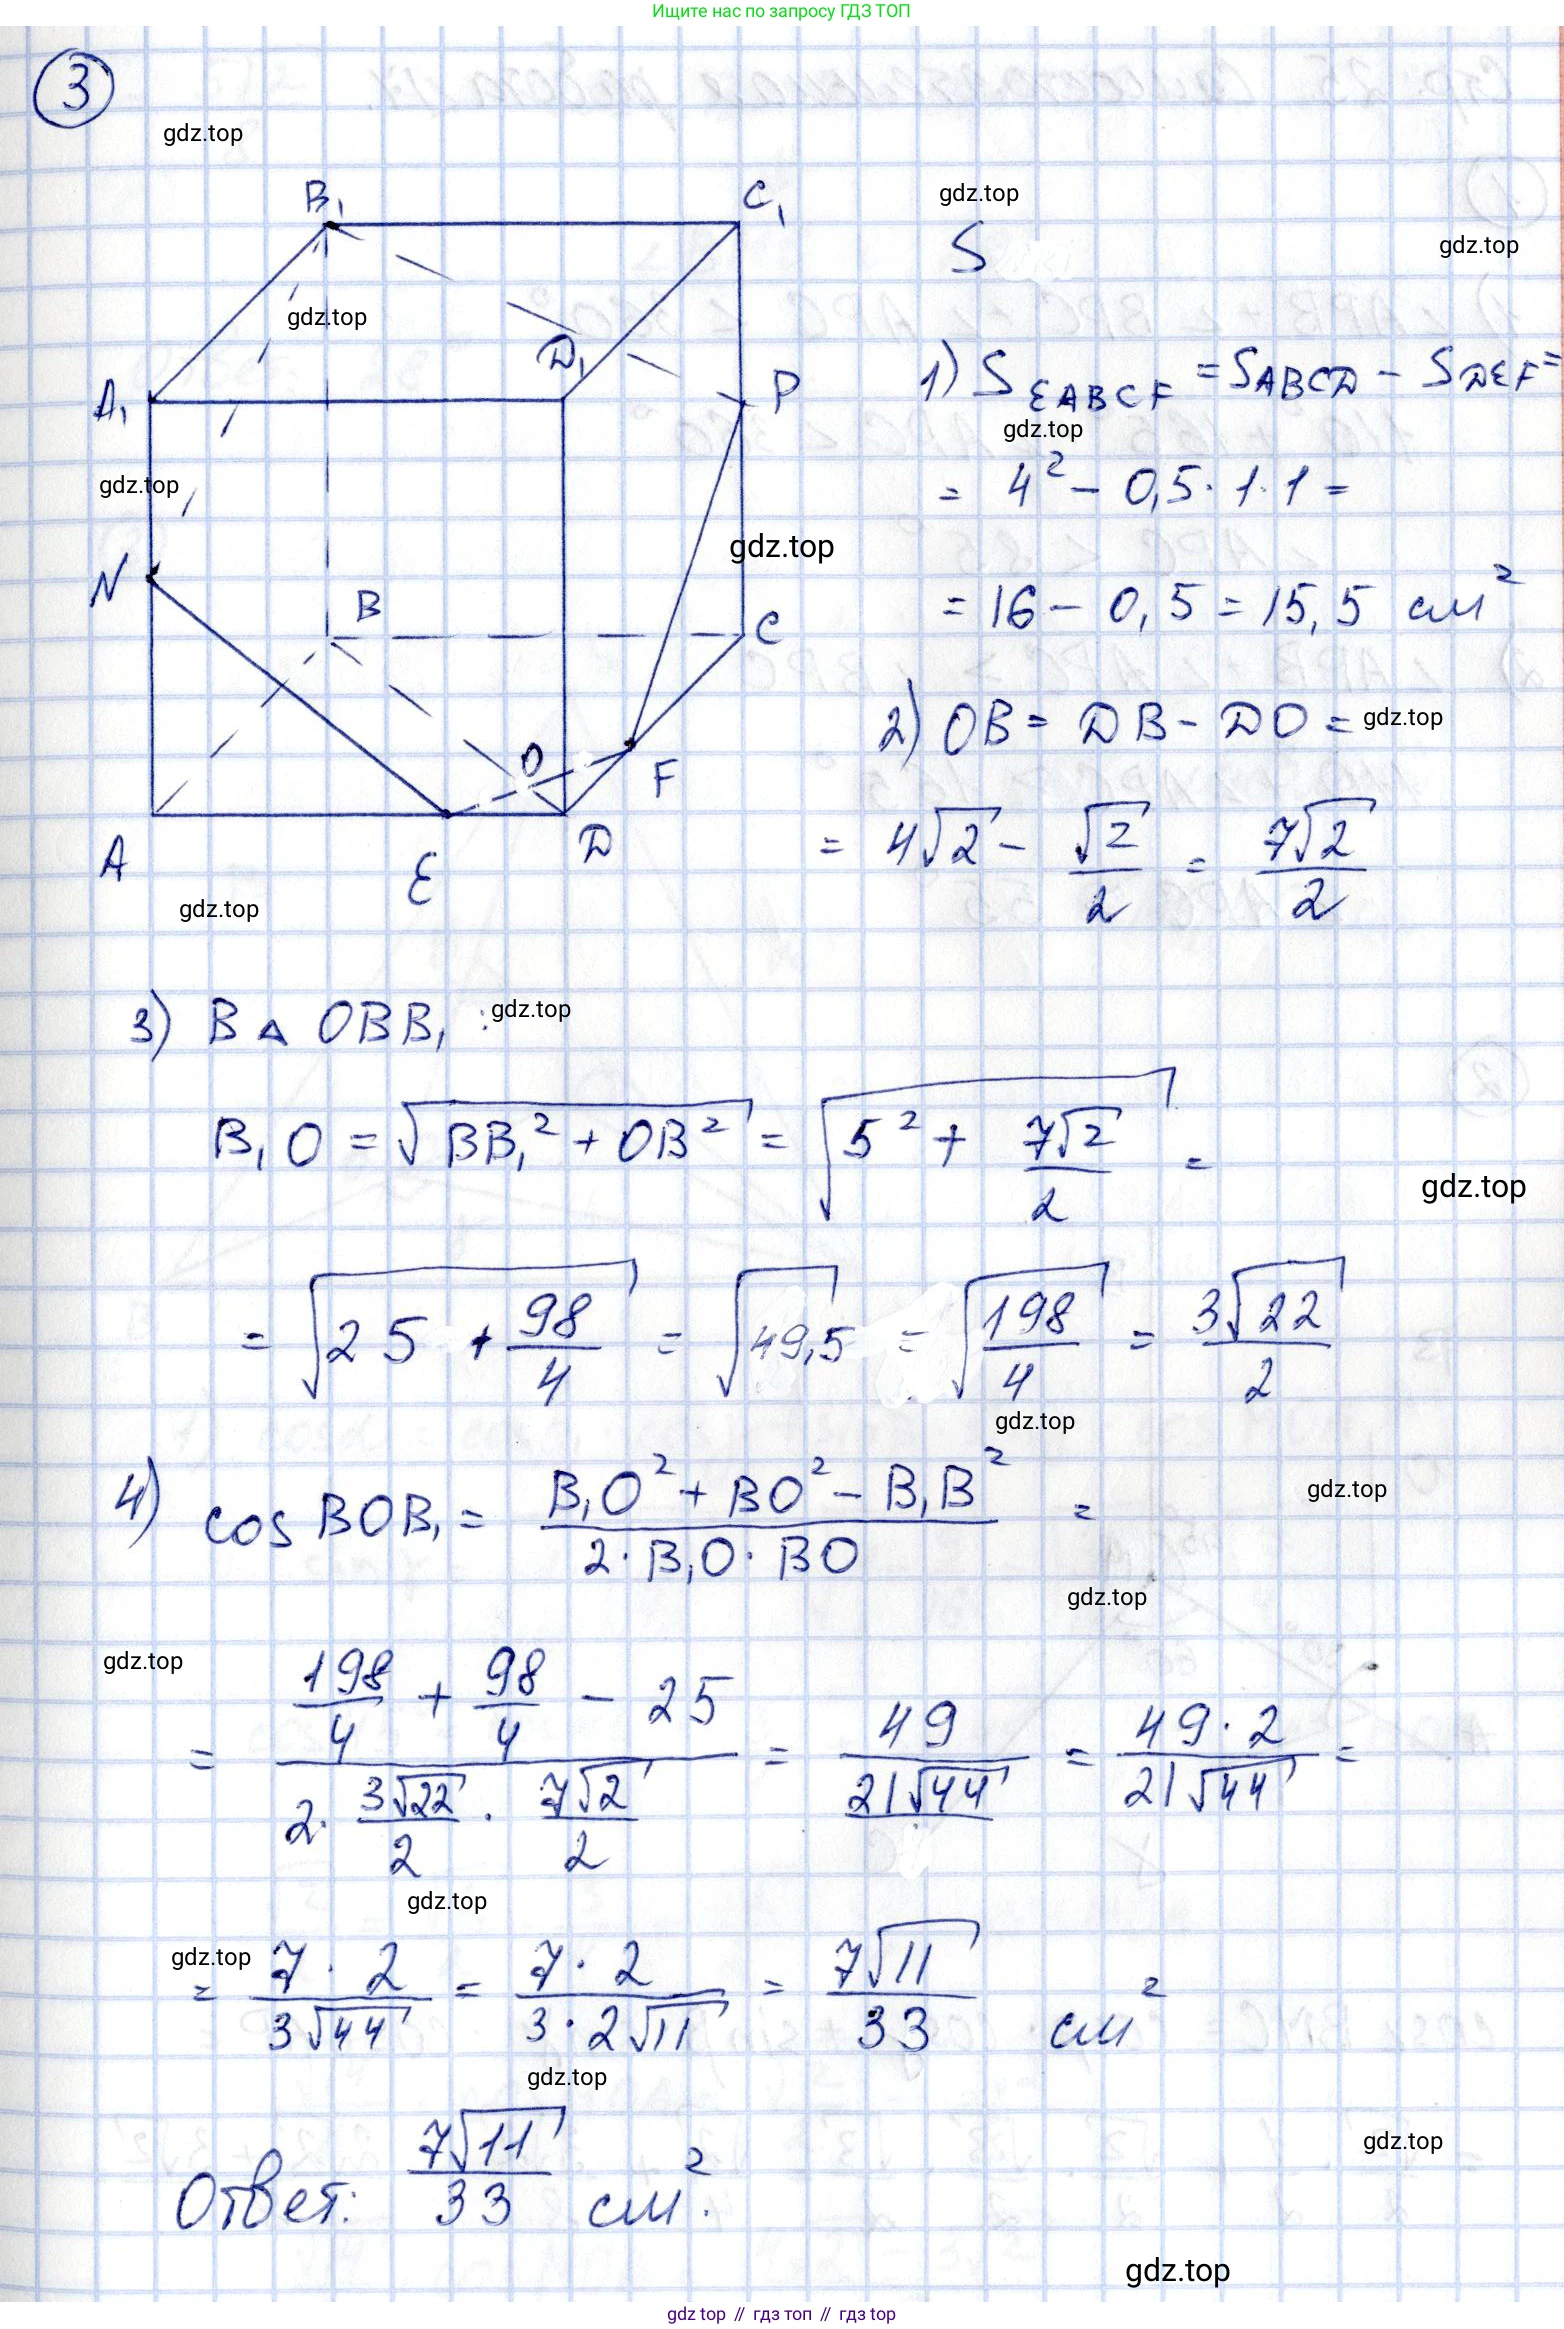 Ищите нас по запросу ГДЗ ТОП
3
gdz.top
B₁
C₁
gdz.top
S
gdz.top
gdz.top
D₁
A₁
P
1) S EABCF = S ABCD − S DEF =
gdz.top
gdz.top
= 4² − 0,5 · 1 · 1 =
gdz.top
N
B
C
= 16 − 0,5 = 15,5 см²
2) OB = DB − DO =
gdz.top
O
F
A
E
D
= 4√2 − √2/2 = 7√2/2
gdz.top
3) В △ OBB₁ :
gdz.top
B₁O = √(BB₁² + OB²) = √(5² + 7√2/2) =
gdz.top
= √(25 + 98/4) = √49,5 = √(198/4) = 3√22/2
gdz.top
4) cos BOB₁ = (B₁O² + BO² − B₁B²)/(2 · B₁O · BO) =
gdz.top
gdz.top
gdz.top
= (198/4 + 98/4 − 25)/(2 · 3√22/2 · 7√2/2) = 49/(21√44) = (49 · 2)/(21√44) =
gdz.top
gdz.top
= (7 · 2)/(3√44) = (7 · 2)/(3 · 2√11) = 7√11/33 см²
gdz.top
gdz.top
Ответ: 7√11/33 см².
gdz.top
gdz top // гдз топ // гдз top